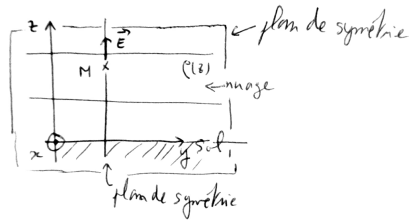 plan de symétrie
z
E
M
ρ(z)
nuage
x
y
sol
plan de symétrie